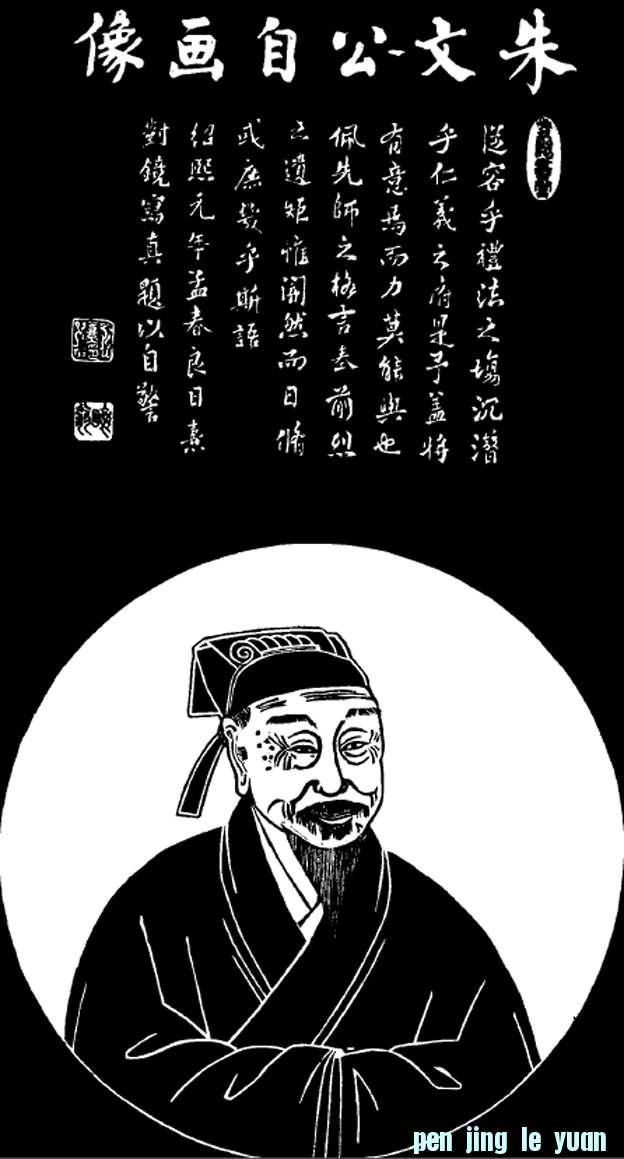 朱文公自画像
從容乎禮法之場沉潛
乎仁義之府是予蓋將
有意焉而力莫能與也
佩先師之格言奉前烈
之遺矩惟闇然而日脩
或庶幾乎斯語
紹熙元年孟春良日熹
對鏡寫真題以自警
pen jing le yuan